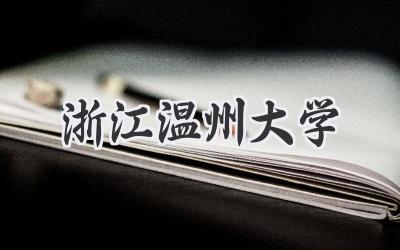 浙江温州大学